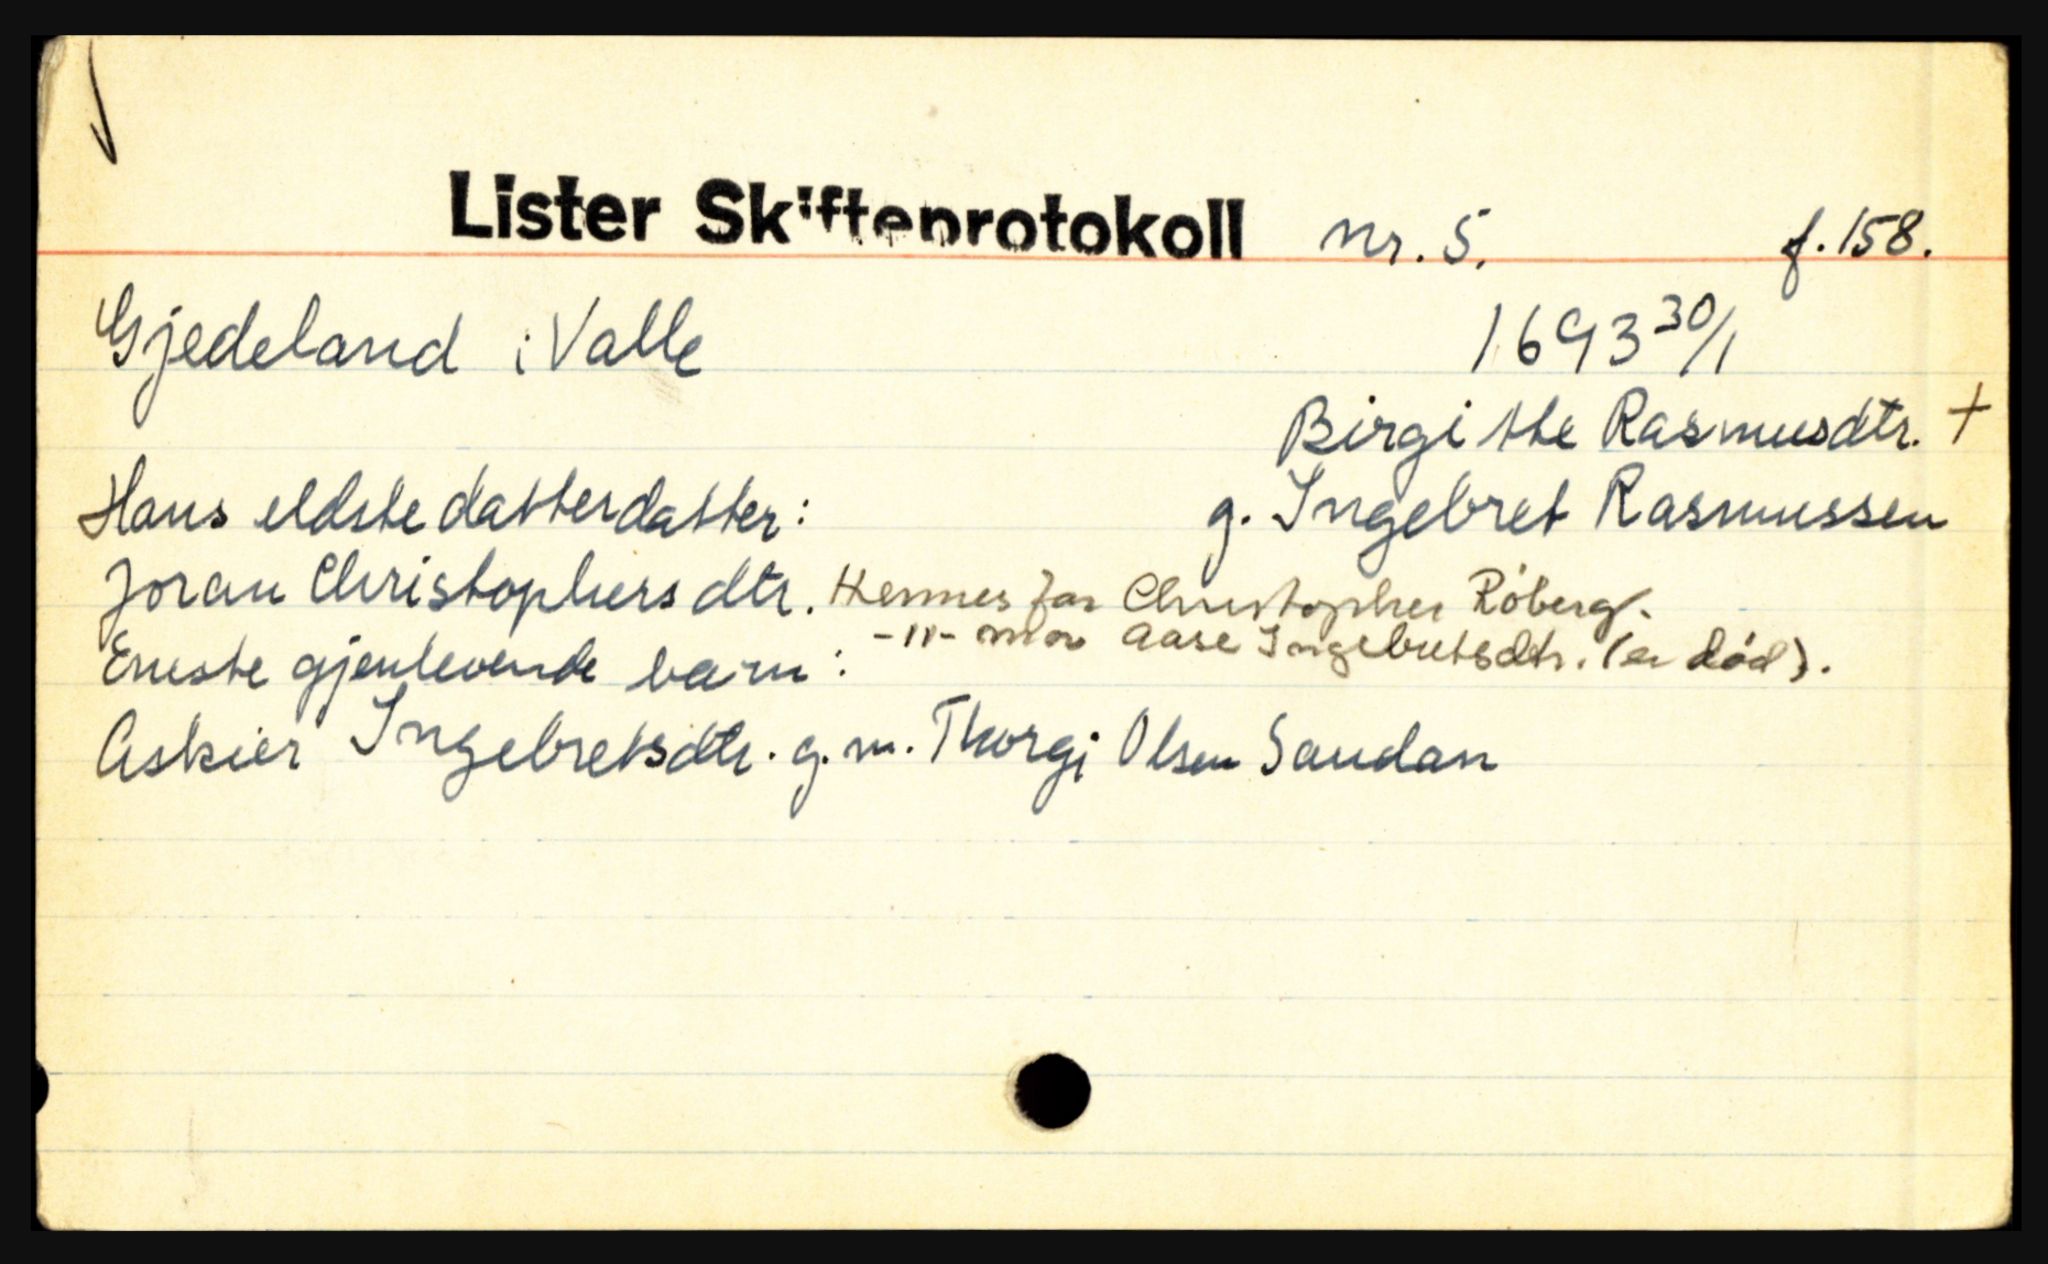 Lister Skifteprotokoll nr. 5. f. 158.
Gjedeland i Valle 1693 30/1
Birgithe Rasmusdtr. +
Hans eldste datterdatter: g. Ingebret Rasmussen
Joran Christophersdtr. Hennes far Christopher Röberg.
-"- mor Aase Ingebretsdtr. (er død).
Eneste gjenlevende barn:
Askier Ingebretsdtr. g. m. Thorgi Olsen Saudan